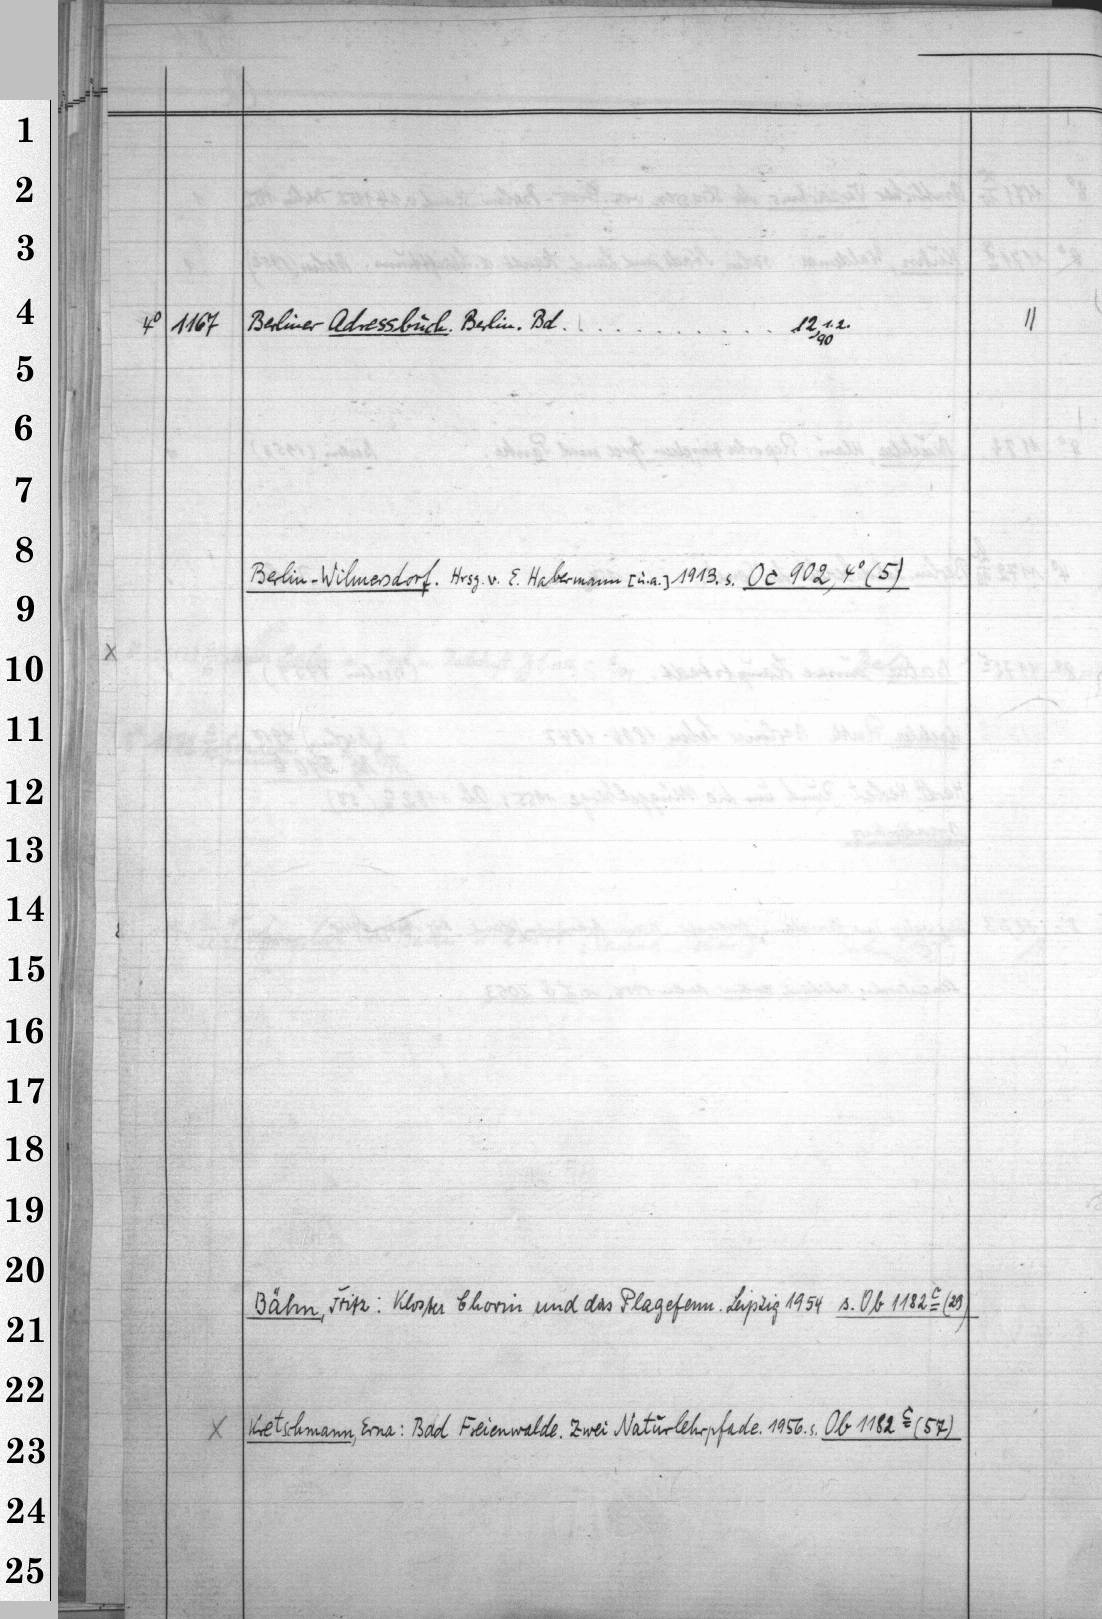 1
2
3
4
4° 1167 Berliner Adressbuch. Berlin. Bd. . . . . . . . . . . . 12,1.2. 90 11
5
6
7
8
Berlin-Wilmersdorf. Hrsg. v. E. Habermann [u.a.] 1913. s. Oc 902, 4° (5)
9
x
10
11
12
13
14
15
16
17
18
19
20
Bähn, Fritz: Kloster Chorin und das Plagefenn. Leipzig 1954 s. Ob 1182 c (29)
21
22
x Kretschmann, Erna: Bad Freienwalde. Zwei Naturlehrpfade. 1956. s. Ob 1182 c (57)
23
24
25